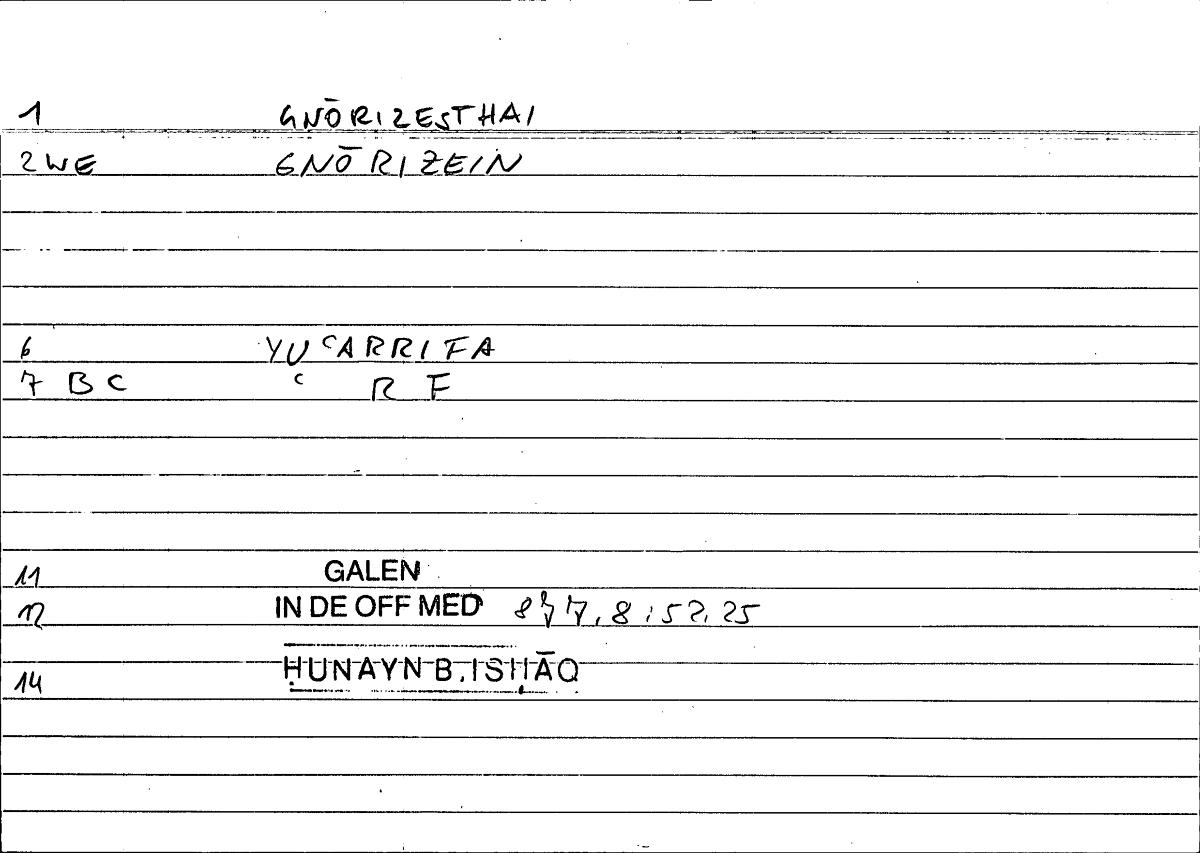 1 GNŌRIZESTHAI
2WE GNŌRIZEIN
6 YUʿARRIFA
7 BC ʿ R F
11 GALEN
12 IN DE OFF MED 7,8:52,25
14 ḤUNAYN B. ISḤĀQ